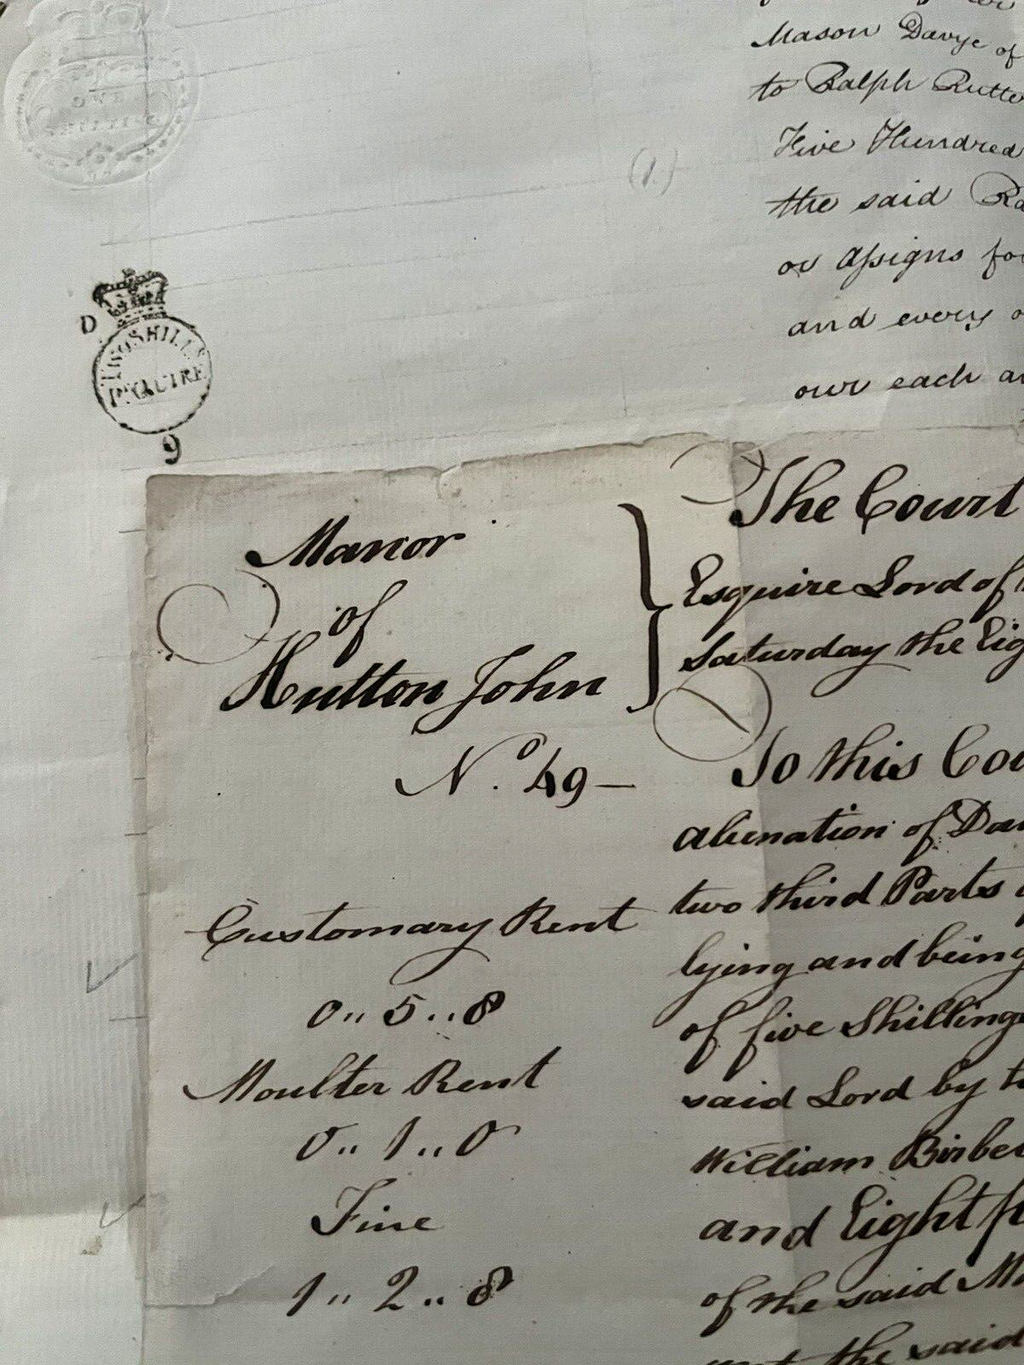 ONE
SHILLING
Mason Davye of
to Ralph Rutte
(1.)
Five Hundred
the said Ra
or assigns for
and every o
our each an
D
TWO SHILLS
P. QUIRE
9
Manor
of
Hutton John
No. 49 —
The Court
Esquire Lord of
Saturday the Eig
To this Cou
alienation of Da
two third Parts
lying and being
of five Shillings
said Lord by t
William Birbe
and Eight p
of the said Ma
the said
Customary Rent
0 ,, 5 ,, 8
Moulter Rent
0 ,, 1 ,, 0
Fine
1 ,, 2 ,, 8